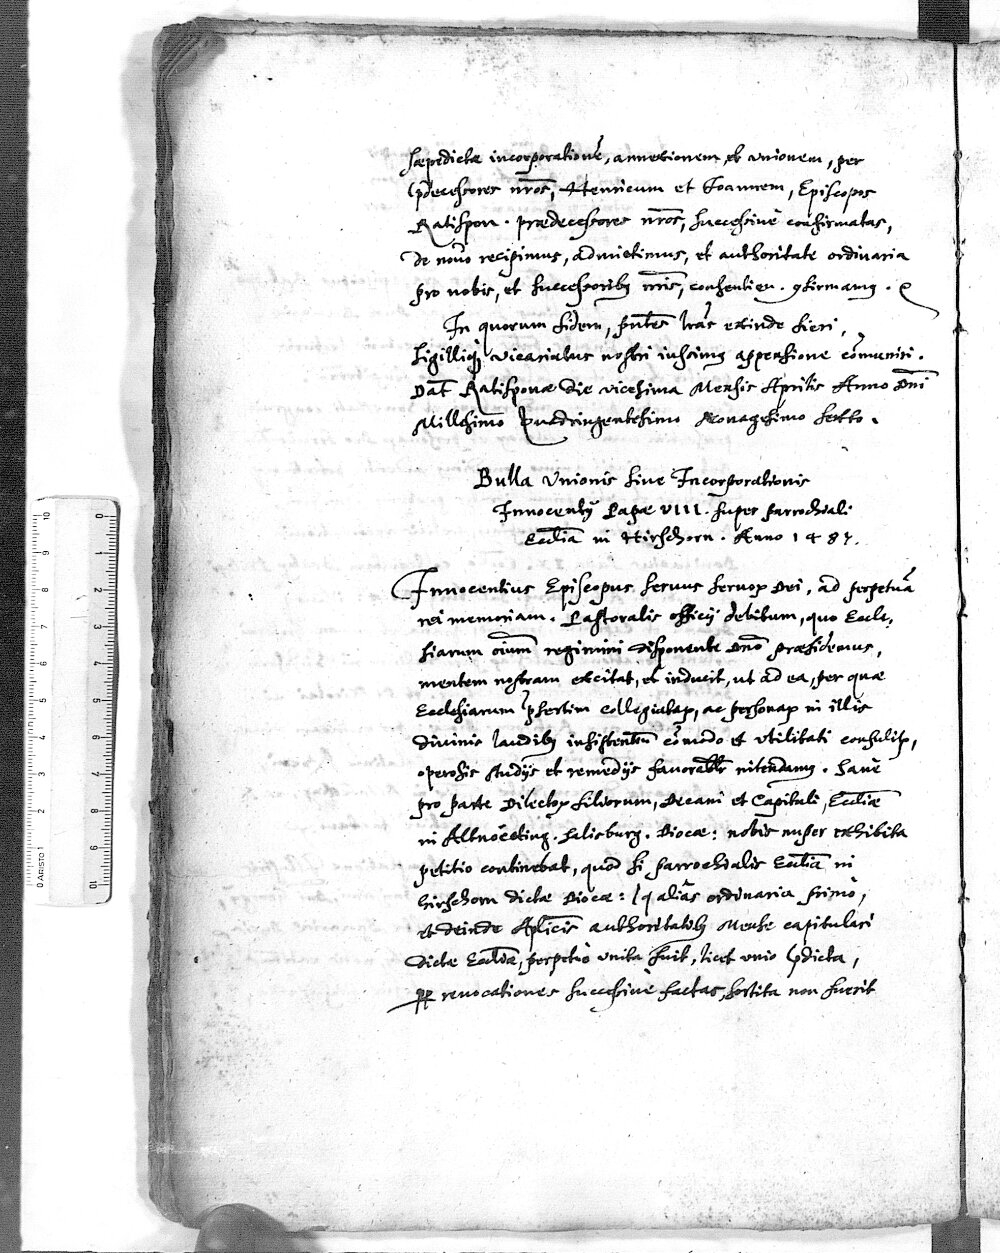 sæpedictæ incorporationē, annexionem, et vnionem, per
p̄decessores nr̄os, Henricum et Joannem, Episcopos
Ratispon. prædecessores nr̄os, successivè confirmatas,
de nouo recipimus, admittimus, et authoritate ordinaria
pro nobis, et successorib9 nr̄is, consentien. 9firmam9.
In quorum fidem, pn̄tes lr̄as exinde fieri,
sigilliq3 vicariatus nostri iussim9 appensione cōmuniri.
Dat̄. Ratisponæ die vicesima Mensis Aprilis Anno Dn̄i
Millesimo Quadringentesimo Nonagesimo sexto.
Bulla Vnionis siue Incorporationis
Innocentij Papæ VIII. super parrochiali
Eccl̄ia in Hirschorn. Anno 1487.
Innocentius Episcopus seruus seruoꝝ Dei, ad perpetuā
rei memoriam. Pastoralis officij debitum, quo Eccle,
siarum oīum regimini disponente Dn̄o præsidemus,
mentem nostram excitat, et inducit, ut ad ea, per quæ
Ecclesiarum p̄sertim collegiataꝝ, ac personaꝝ in illis
diuinis laudib9 insistentiū cōmodo et vtilitati consulit~,
operosis studijs et remedijs fauorabl̄r intendam9. Sanè
pro parte Dilectoꝝ filiorum, Decani et Capituli, Eccl̄iæ
in Altnöeting. Salisburg. Diocæ: nobis nuper exhibita
petitio continebat, quòd si parrochialis Eccl̄ia in
Hirschorn dictæ Diocæ: lꝫ aliàs ordinaria primò,
et deinde Apl̄icis authoritatib9 Mensæ capitulari
dictæ Eccl̄iæ, perpetuò vnita fuit, licet vnio p̄dicta,
ꝓꝑ reuocationes successiuè factas, sortita non fuerit